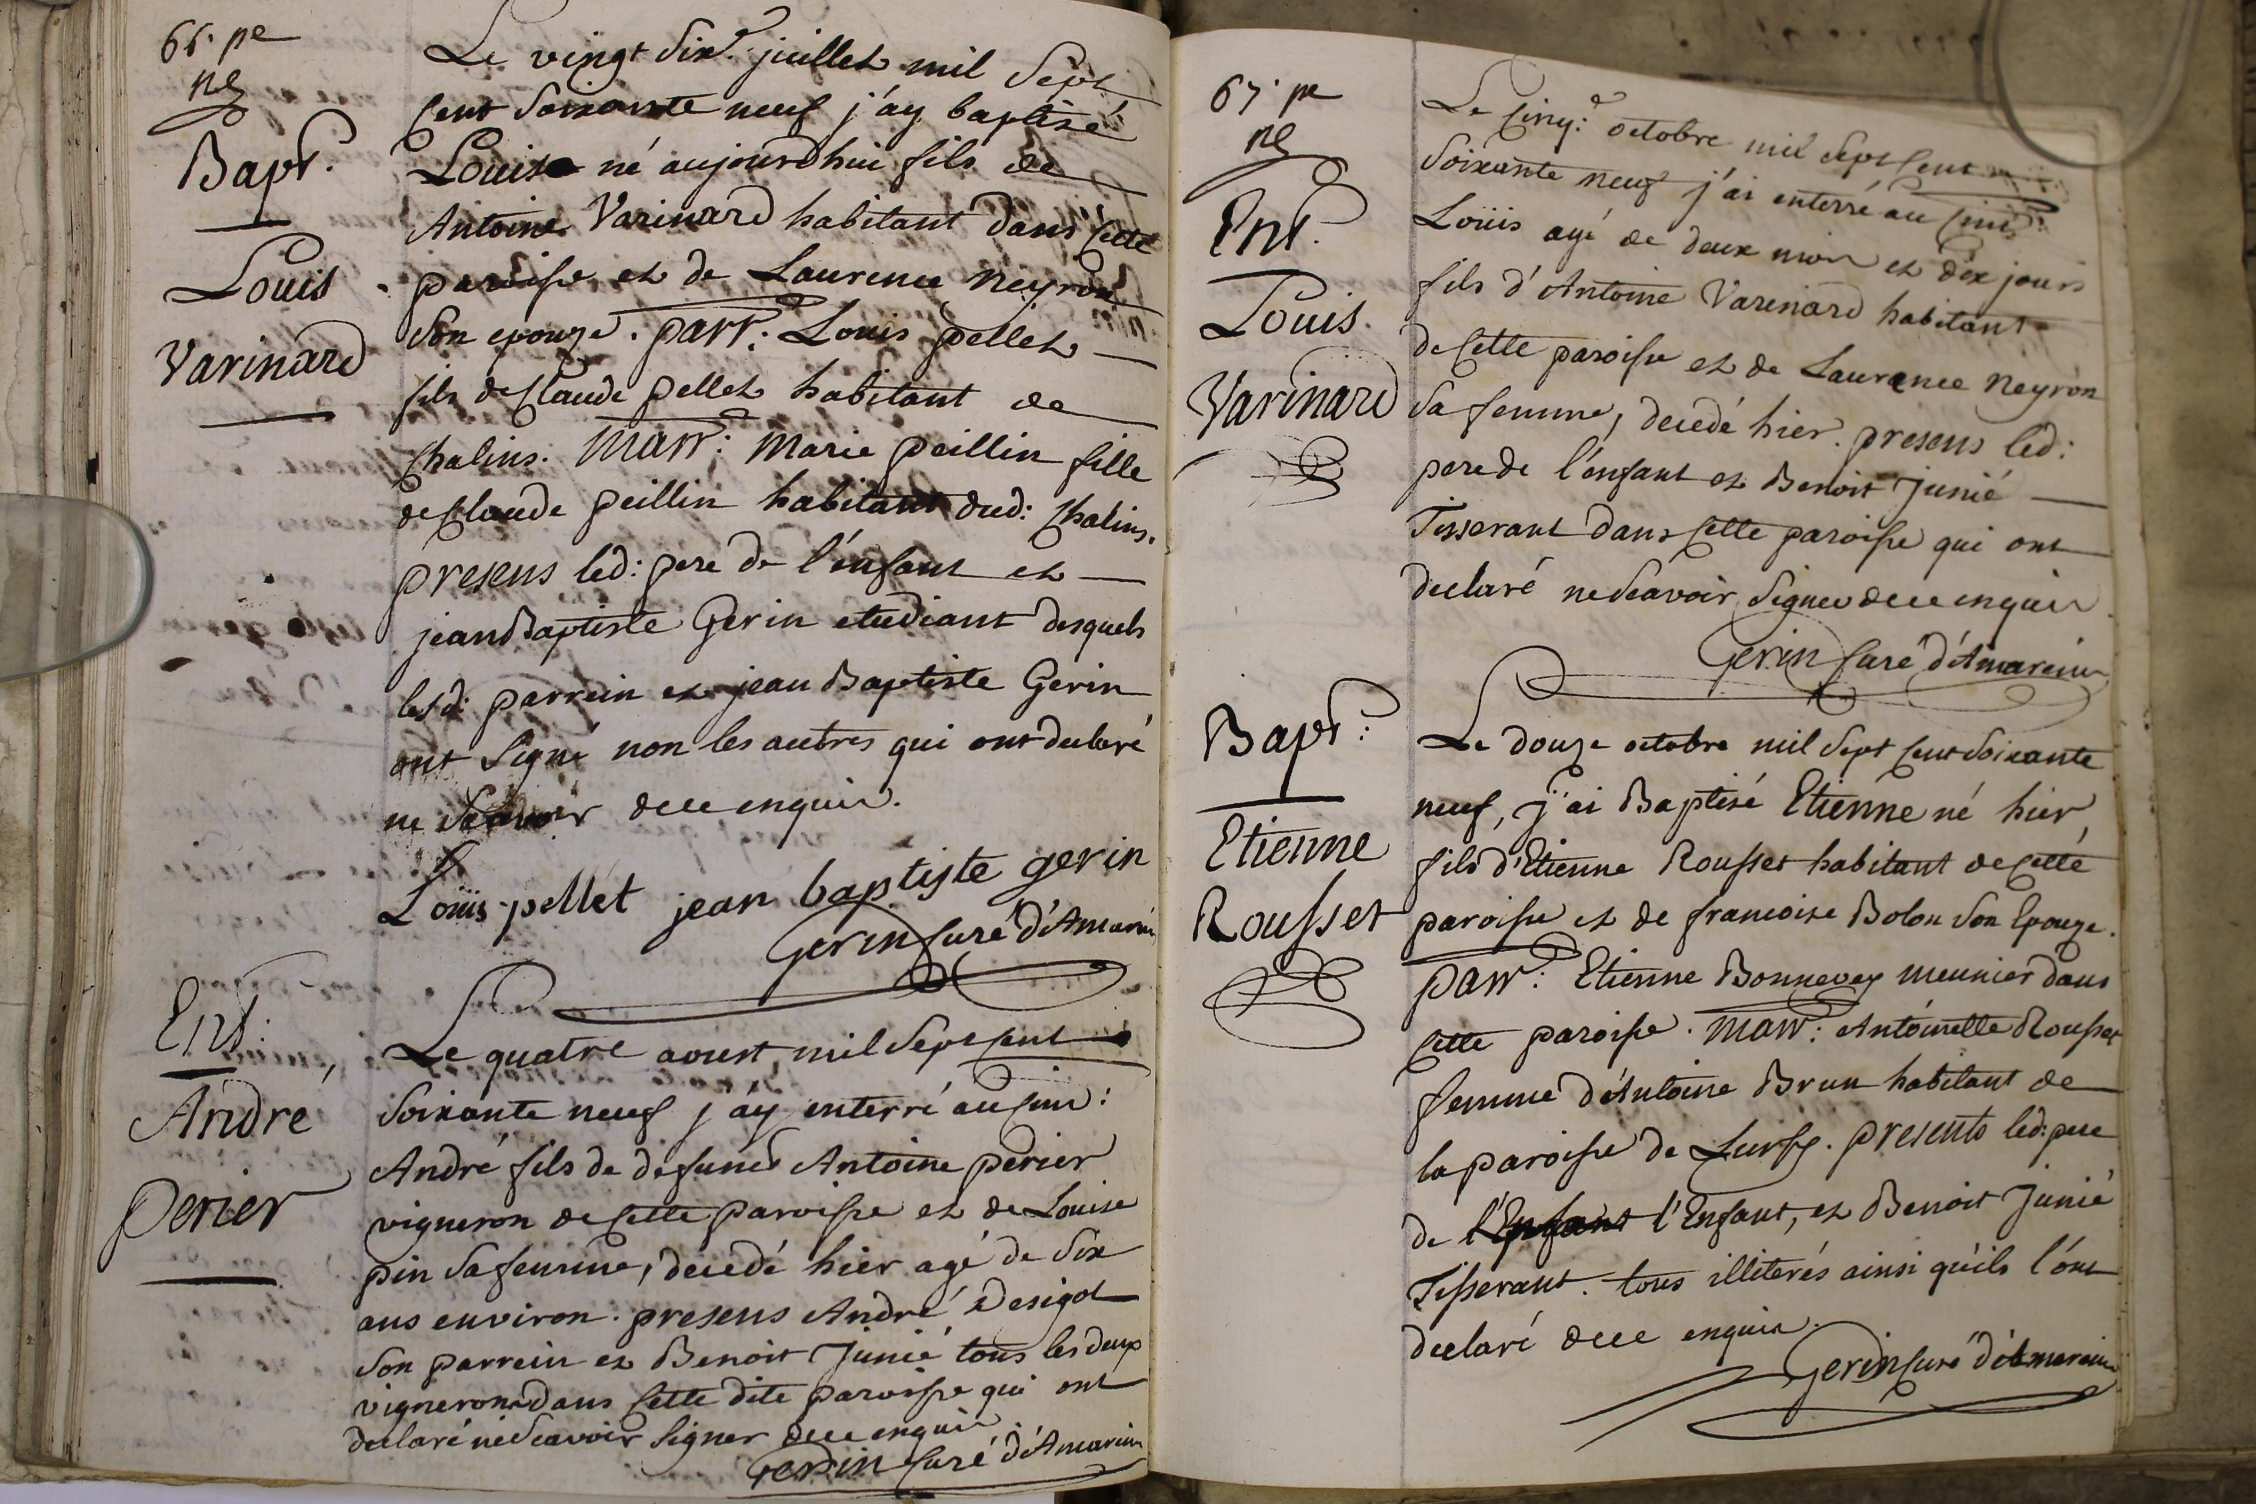 66. pe
ne
Bapt.
Louis
Varinard
Le vingt Sixe. juillet mil Sept
Cent Soixante neuf j'ay baptisé
Louis né aujourdhui fils de
Antoine Varinard habitant dans Cette
paroisse et de Laurence Neyron
Son epouze. parr: Louis pellet
fils de Claude pellet habitant de
Chalins. Marr: Marie peillin fille
de Claude peillin habitant dud: Chalins.
presens led: pere de l'enfant et
jean Baptiste Gerin etudiant desquels
lesd: parrein et jean Baptiste Gerin
ont Signé non les autres qui ont declaré
ne Scavoir de ce enquis.
Loüis pellet jean baptiste gerin
Gerin Curé d'Amarein
Ent:
André
Perier
Le quatre aoust mil Sept Cent
Soixante neuf j'ay enterré au Cim:
André fils de defunct Antoine perier
vigneron de Cette paroisse et de Louise
pin Sa femme, decedé hier agé de Six
ans environ. presens André Desigot
Son parrein et Benoit Junié tous les deux
vignerons dans Cette dite paroisse qui ont
declaré ne Scavoir Signer de ce enquis
Gerin Curé d'Amarein
67. pe
ne
Ent.
Louis.
Varinard
Le Cinq:e octobre mil Sept Cent
Soixante neuf j'ai enterré au Cim:
Loüis agé de deux mois et dix jours
fils d'Antoine Varinard habitant
de Cette paroisse et de Laurence Neyron
Sa femme, decedé hier. presens led:
pere de l'enfant et Benoit Junié
Tisserant dans Cette paroisse qui ont
declaré ne Scavoir Signer de ce enquis
Gerin Curé d'Amarein
Bapt:
Etienne
Rousset
Le douze octobre mil Sept Cent Soixante
neuf, j'ai Baptisé Etienne né hier,
fils d'Etienne Rousset habitant de Cette
paroisse et de francoise Bolon Son Epouze.
parr: Etienne Bonnevay meunier dans
Cette paroisse. Marr: Antoinette Rousset
femme d'Antoine Brun habitant de
la paroisse de Lurcy. presents led: pere
de l'Enfant l'Enfant, et Benoit Junié
Tisserant. tous illiterés ainsi qu'ils l'ont
declaré de ce enquis.
Gerin Curé d'Amarein